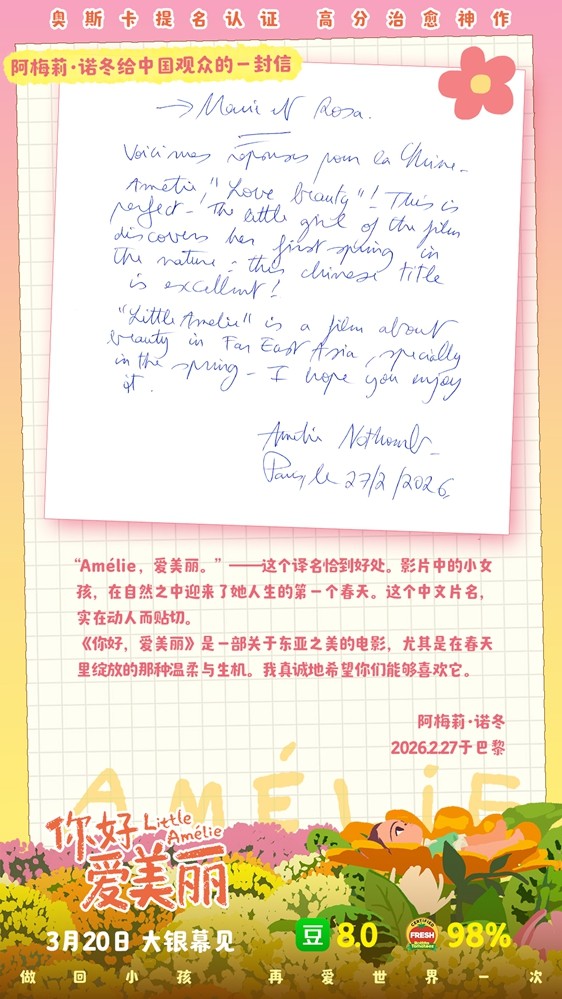 奥斯卡提名认证 高分治愈神作
阿梅莉·诺冬给中国观众的一封信
→ Marie N Rosa.
Voici mes réponses pour la Chine.
Amélie "Love beauty"! This is
perfect! The little girl of the film
discovers her first spring in
the nature: this chinese title
is excellent!
"Little Amélie" is a film about
beauty in Far East Asia, specially
in the spring - I hope you enjoy
it.
Amélie Nothomb
Paris, le 27/2/2026
“Amélie，爱美丽。”——这个译名恰到好处。影片中的小女
孩，在自然之中迎来了她人生的第一个春天。这个中文片名，
实在动人而贴切。
《你好，爱美丽》是一部关于东亚之美的电影，尤其是在春天
里绽放的那种温柔与生机。我真诚地希望你们能够喜欢它。
阿梅莉·诺冬
2026.2.27于巴黎
AMÉLiE
你好 Little
Amélie
爱美丽
3月20日 大银幕见
豆 8.0 CERTIFIED FRESH Rotten Tomatoes 98%
做回小孩 再爱世界一次